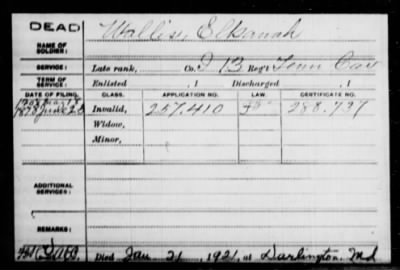 DEAD
NAME OF SOLDIER: Wallis, Elkanah
SERVICE: Late rank, Co. I 13 Reg't Tenn Cav
TERM OF SERVICE: Enlisted , 1 Discharged , 1
DATE OF FILING. CLASS. APPLICATION NO. LAW. CERTIFICATE NO.
1878 June 26 Invalid, 257.410 288.737
Widow,
Minor,
ADDITIONAL SERVICES:
REMARKS:
Died Jan 21, 1921, at Darlington, Md